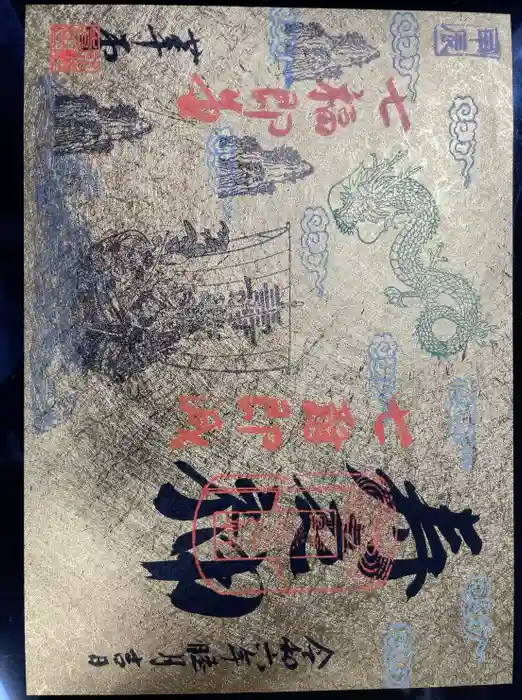 令和六年睦月吉日
寿老神
七難即滅
七福即生
甲辰